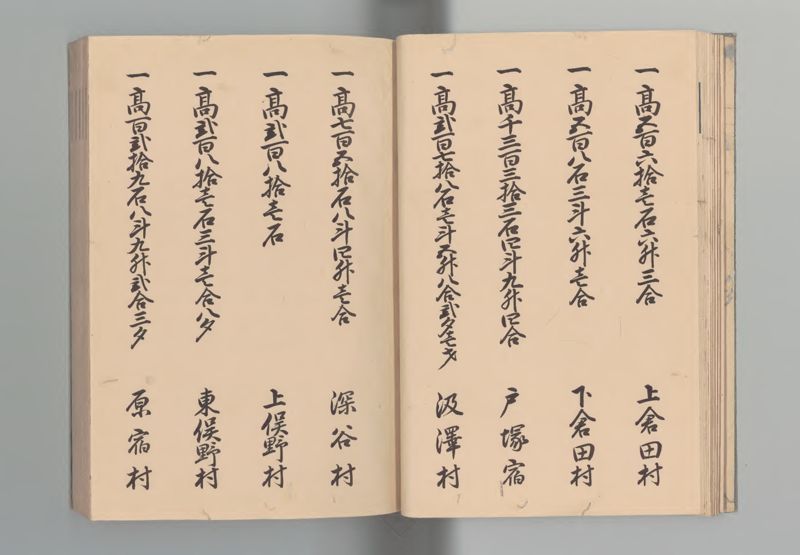 一高五百六拾壱石六舛三合 上倉田村
一高五百八石三斗六舛壱合 下倉田村
一高千三百三拾三石四斗九舛四合 戸塚宿
一高弐百七拾八石壱斗五舛八合弐夕壱才 汲澤村
一高七百五拾石八斗四舛壱合 深谷村
一高弐百八拾壱石 上俣野村
一高弐百八拾壱石三斗壱合八夕 東俣野村
一高百弐拾九石八斗九舛弐合三夕 原宿村